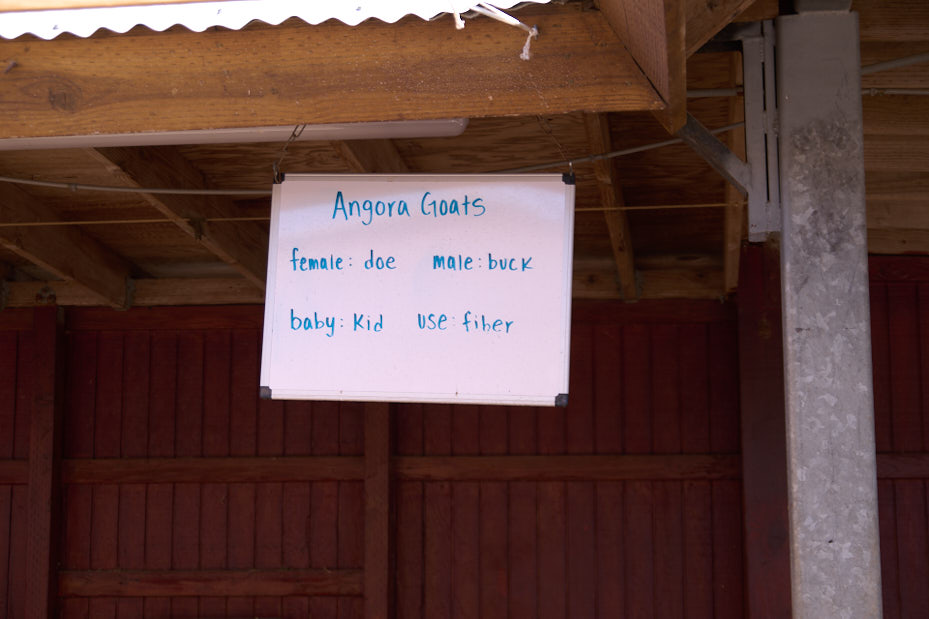 Angora Goats
female: doe male: buck
baby: Kid use: fiber